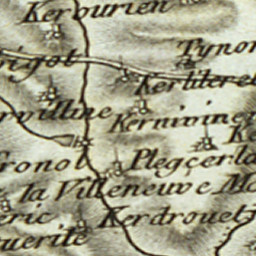 Kerourien
Tynor
rigot
Kerliteret
rvilline
Kerniviner
Ke
Fronol
Plegçerla
la Villeneuve Mo
eric
Kerdrouet
uerite